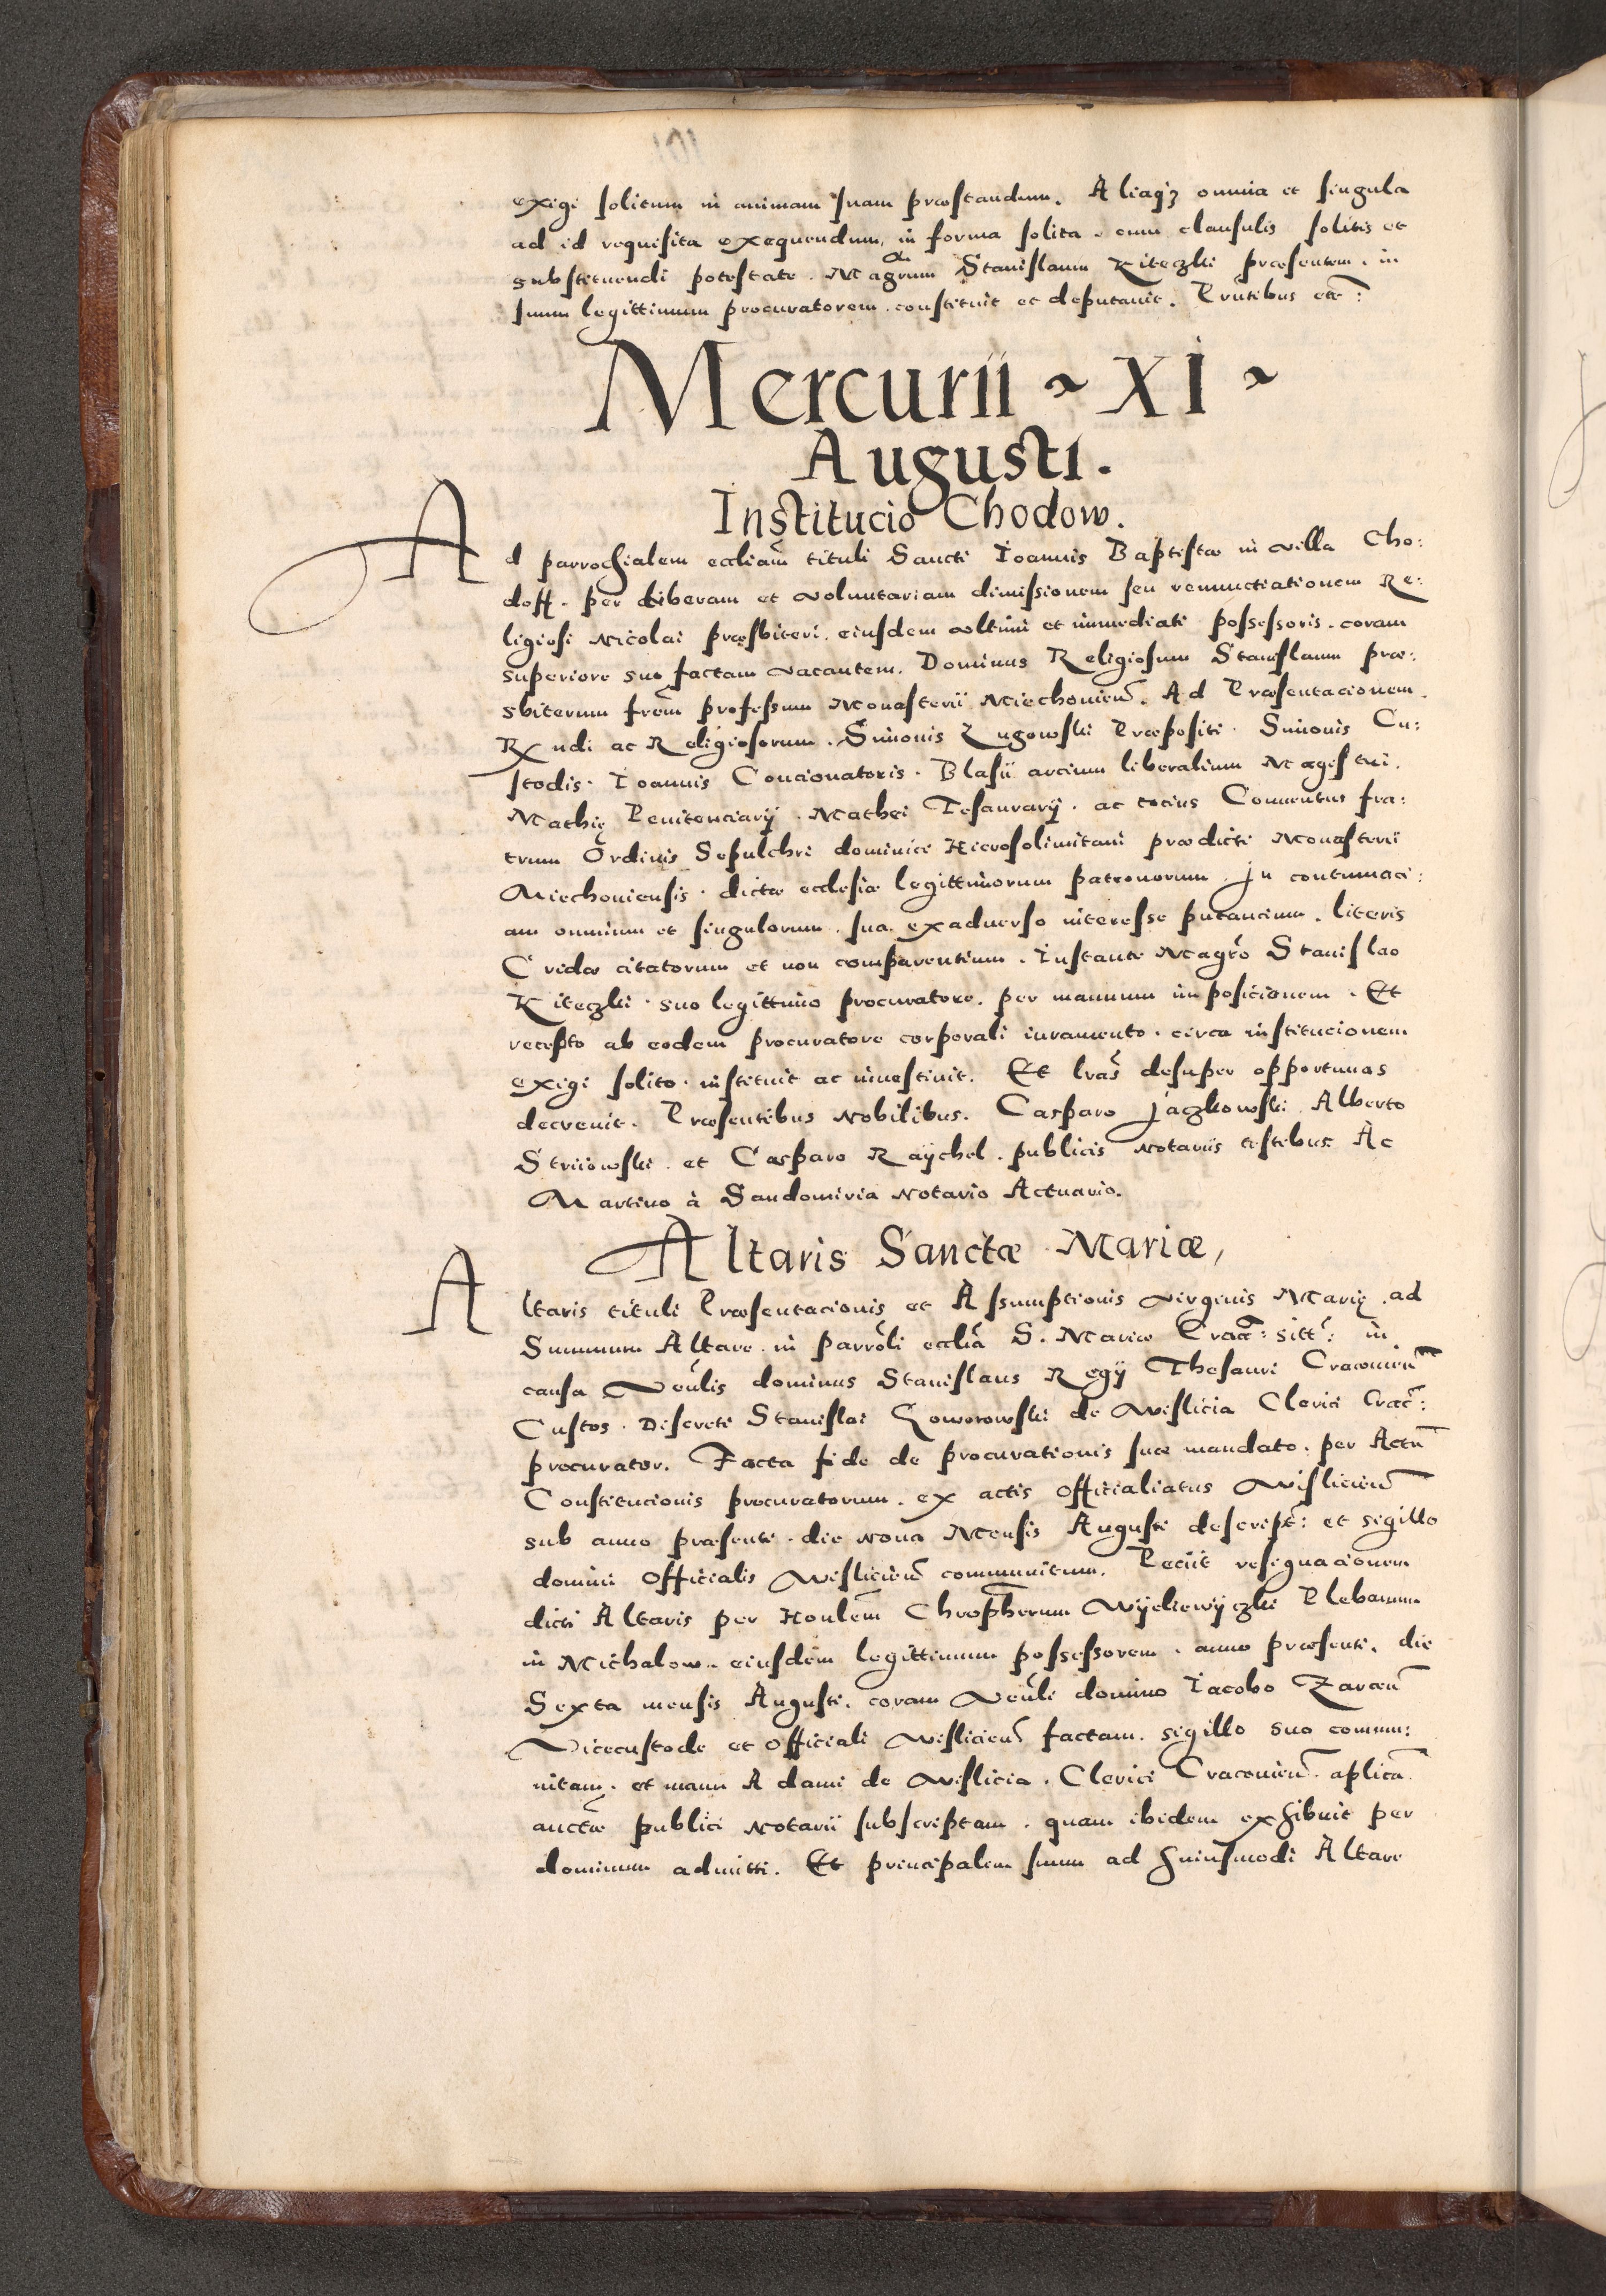 exigi solitum in animam suam præstandum. Aliaqz omnia et singula
ad id requisita exequendum, in forma solita. cum clausulis solitis et
substituendi potestate. Magrum Stanislaum Kiteczki præsentem. in
suum legittimum procuratorem. constituit et deputauit. Prntibus etc:
Mercurii ~ XI ~
Augusti.
Institucio Chodow.
Ad parrochialem eccliam tituli Sancti Ioannis Baptistæ in villa Cho:
doff. per liberam et voluntariam dimissionem seu renunctiationem Re:
ligiosi Nicolai præsbiteri. eiusdem vltimi et immediati possessoris. coram
superiore suo factam vacantem. Dominus Religiosum Stanislaum præ:
sbiterum frem professum Monasterii Miechouien. Ad Præsentacionem.
Rxndi ac Religiosorum. Simonis Zugowski Præpositi. Simonis Cu:
stodis. Ioannis Concionatoris. Blasii arcium liberalium Magistri.
Mathię Penitenciarij. Mathei Tesaurarij. ac tocius Conuentus fra:
trum Ordinis Sepulchri dominici Hierosolimitani prædicti Monasterii
Miechouiensis. dictæ ecclesiæ legittimorum patronorum. In contumaci:
am omnium et singulorum. sua. exaduerso interesse putancium. literis
Cridæ citatorum et non comparentium. Instante Magro Stanislao
Kiteczki. suo legittimo procuratore. per manuum impositionem. Et
recepto ab eodem procuratore corporali iuramento. circa institucionem
exigi solito. instituit ac inuestiuit. Et lras desuper opportunas
decreuit. Præsentibus Nobilibus. Casparo Jaczkowski Alberto
Striiowski. et Casparo Raÿchel. publicis Notariis testibus Ac
Martino à Sandomiria Notario Actuario.
Altaris Sanctæ Mariæ,
Altaris tituli Præsentacionis et Assumptionis virginis Marię. ad
Summum Altare. in parroli ecclia S. Mariæ Crac: sitt: in
causa Venlis dominus Stanislaus Regij Thesauri Cracouien
Custos. Discreti Stanislai Goworowski de Wislicia Clerici Crac:
procurator. Facta fide de procurationis suæ mandato. per Actu
Constitucionis procuratorum. ex actis Officialiatus Wislicien
sub anno præsenti. die Nona Mensis Augusti descript: et sigillo
domini Officialis Wislicien communitum. Peciit resignacionem
dicti Altaris per Honlem Chropherum Wÿekiewÿczki Plebanum
in Michalow. eiusdem legittimum possessorem. anno præsenti. die
Sexta mensis Augusti. coram Venli domino Iacobo Zarcen
Vicecustode et Officiali Wislicien factam. sigillo suo commu:
nitam. et manu Adami de Wislicia. Clerici Cracouien. aplica
auctæ publici Notarii subscriptam. quam ibidem exhibuit per
dominum admitti. Et principalem suum ad huiusmodi Altare